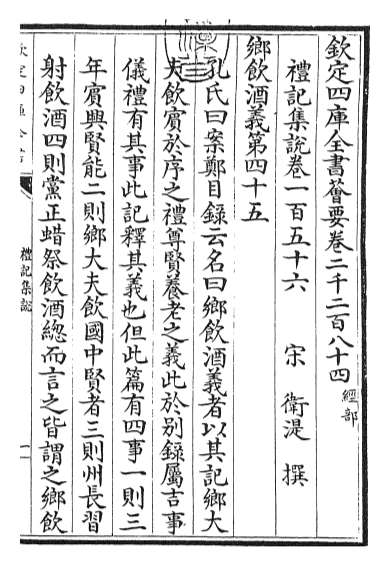 欽定四庫全書薈要卷二千二百八十四 經部
禮記集說卷一百五十六 宋 衛湜 撰
鄉飲酒義第四十五
孔氏曰案鄭目錄云名曰鄉飲酒義者以其記鄉大
夫飲賓於序之禮尊賢養老之義此於別錄屬吉事
儀禮有其事此記釋其義也但此篇有四事一則三
年賓興賢能二則鄉大夫飲國中賢者三則州長習
射飲酒四則黨正蜡祭飲酒總而言之皆謂之鄉飲
禮記集說
一